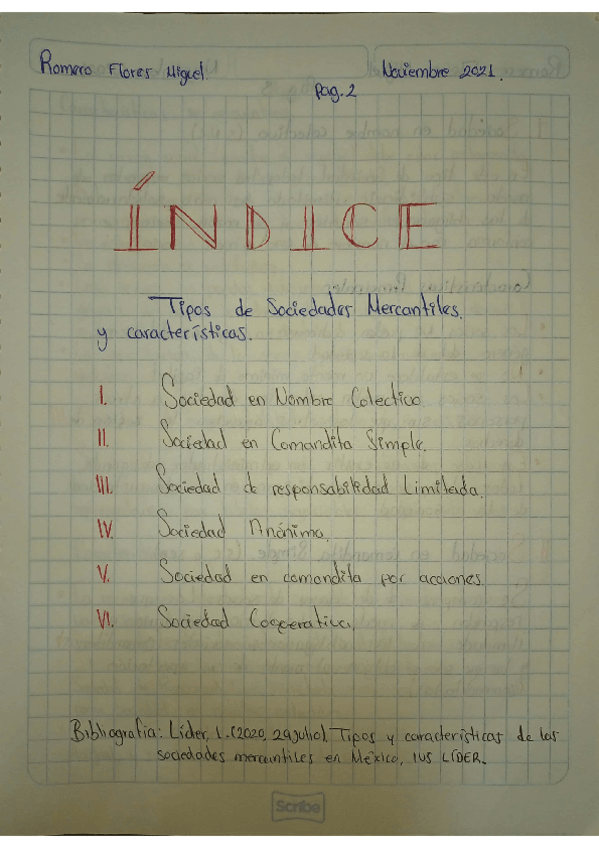 Romero Flores Miguel
Noviembre 2021.
Pag. 2
ÍNDICE
Tipos de Sociedades Mercantiles.
y características.
I. Sociedad en Nombre Colectivo
II. Sociedad en Comandita Simple.
III. Sociedad de responsabilidad Limitada.
IV. Sociedad Anónima.
V. Sociedad en comandita por acciones.
VI. Sociedad Cooperativa.
Bibliografía: Líder, L. (2020, 29 julio). Tipos y características de las
sociedades mercantiles en México, IUS LÍDER.
Scribe